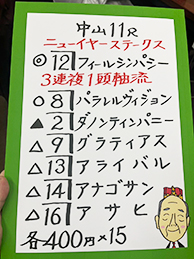 中山11R
ニューイヤーステークス
◎12 フィールシンパシー
3連複1頭軸流
○8 パラレルヴィジョン
▲2 ダノンティンパニー
△9 グラティアス
△13 アライバル
△14 アナゴサン
△16 アサヒ
各400円×15